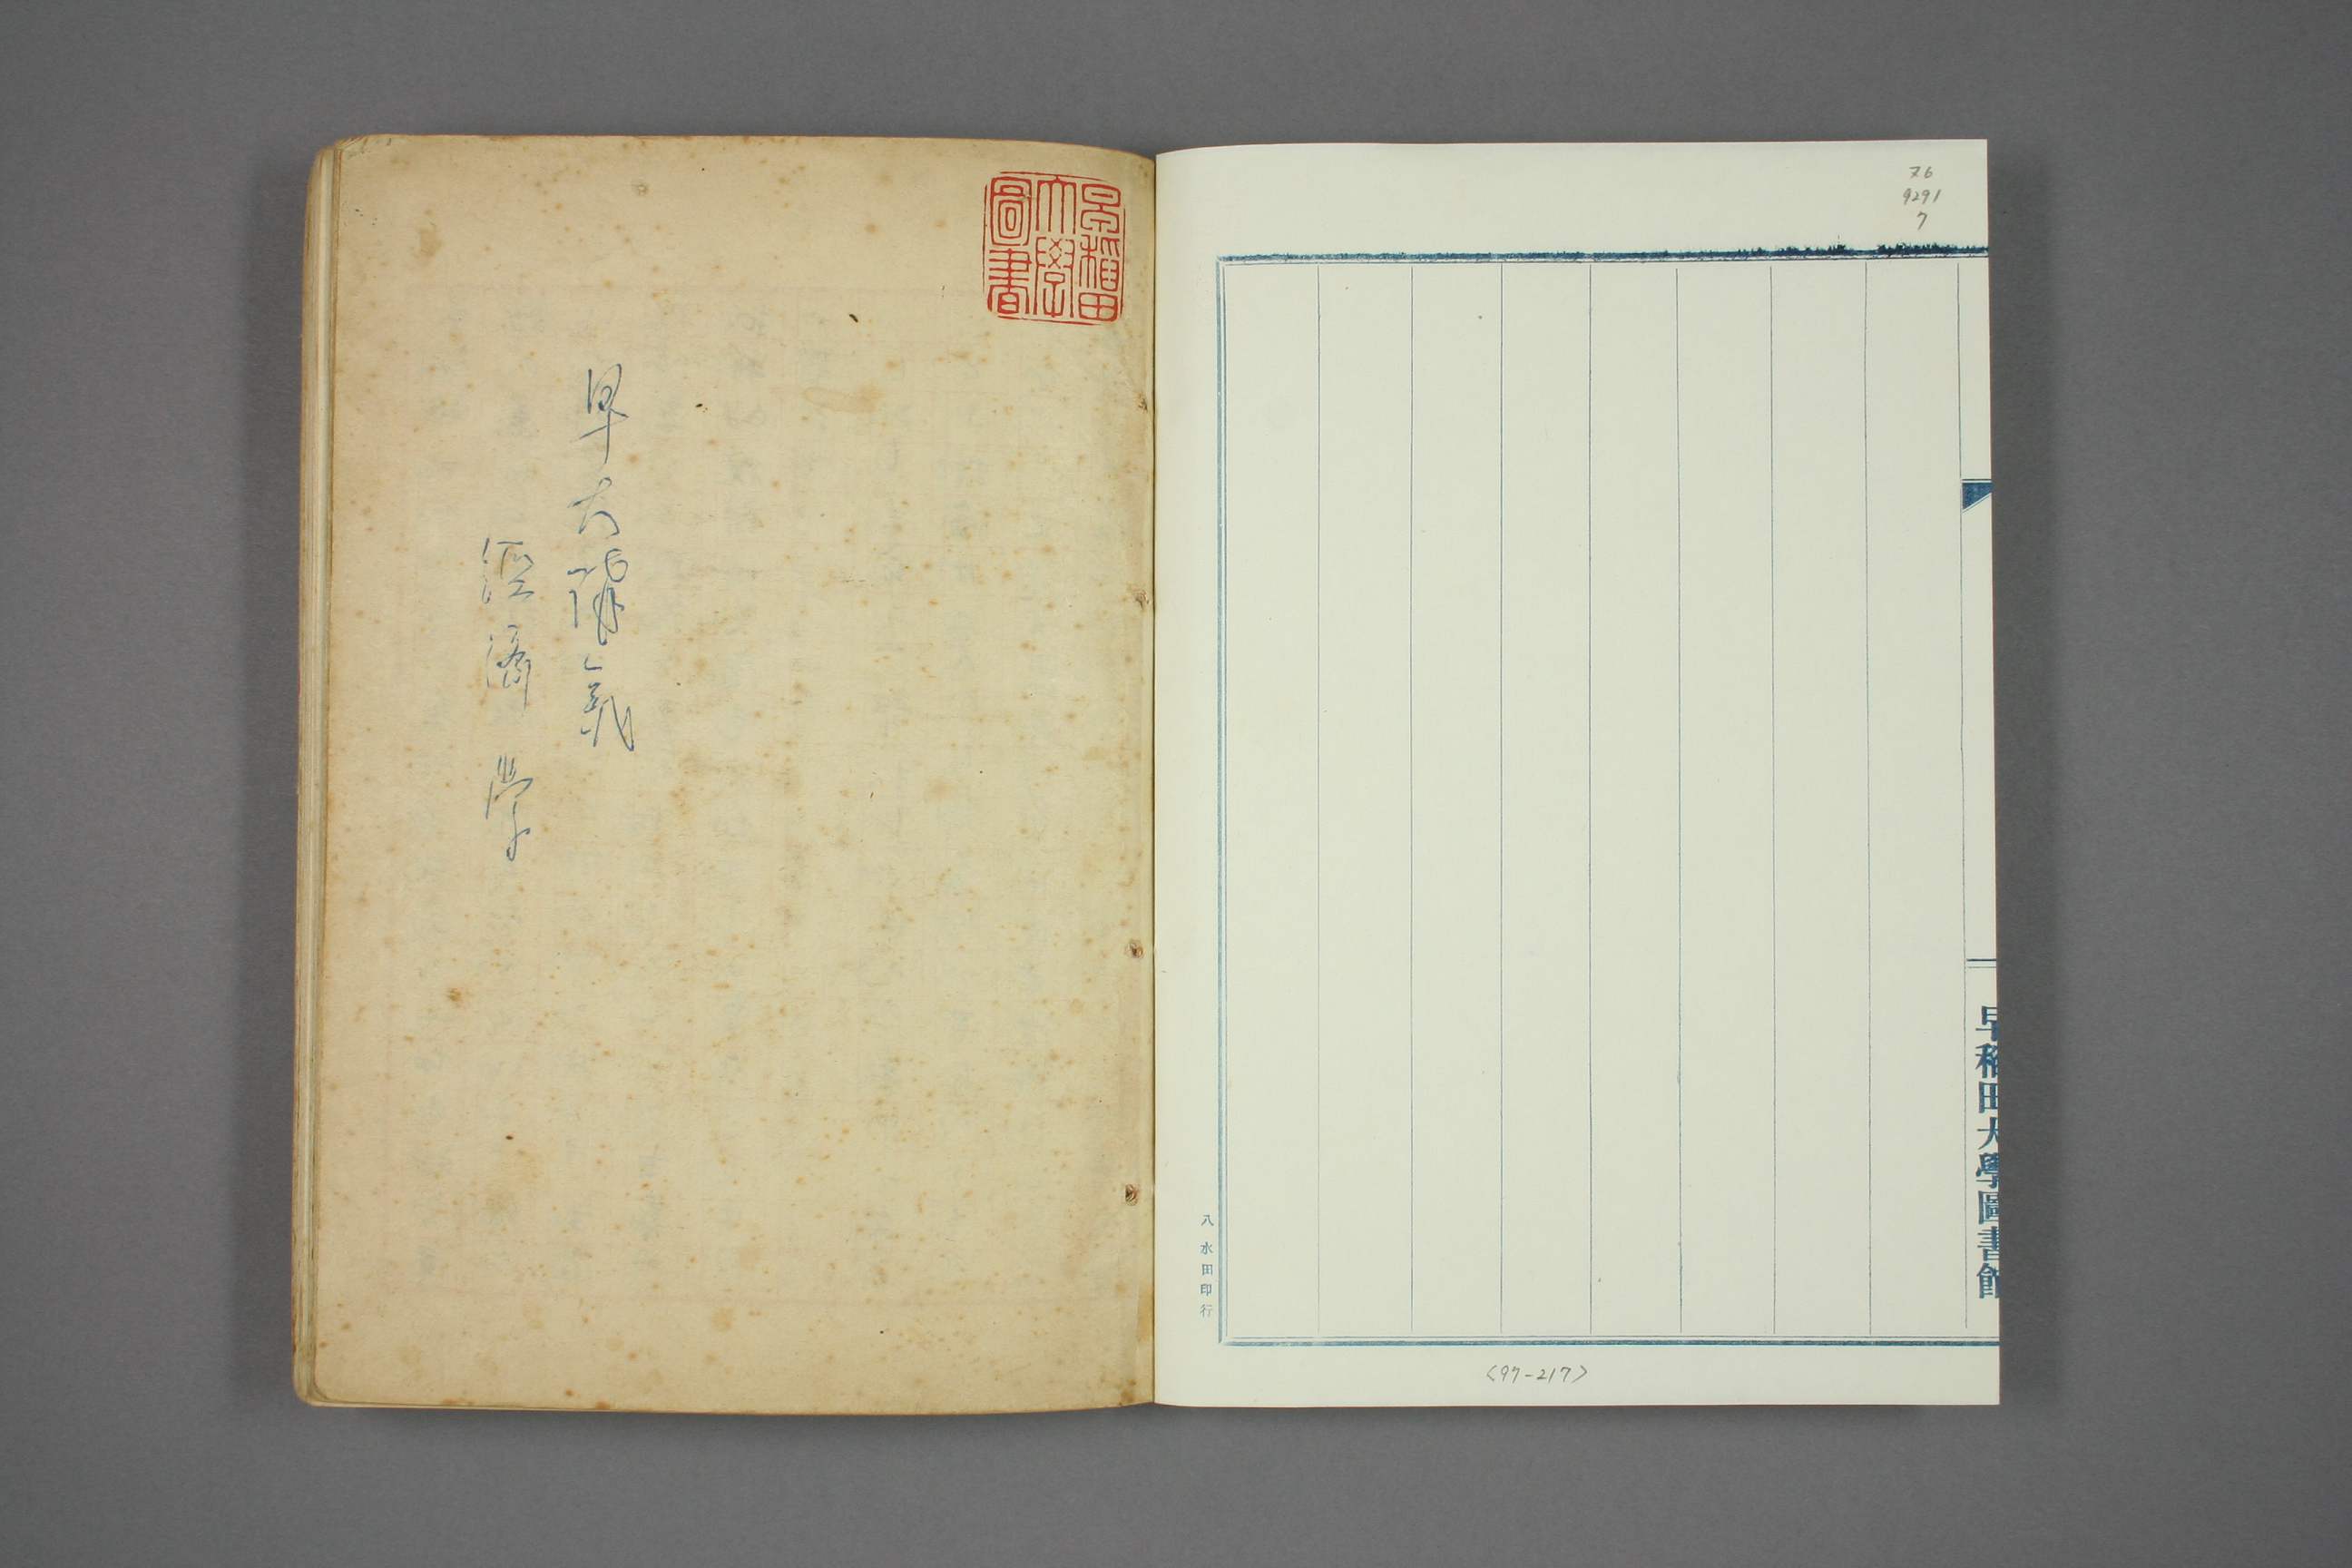 ヌ6
9291
7
早稲田大學圖書館
〈97-217〉
八水田印行
早稲田大學圖書
早大講義
経済学